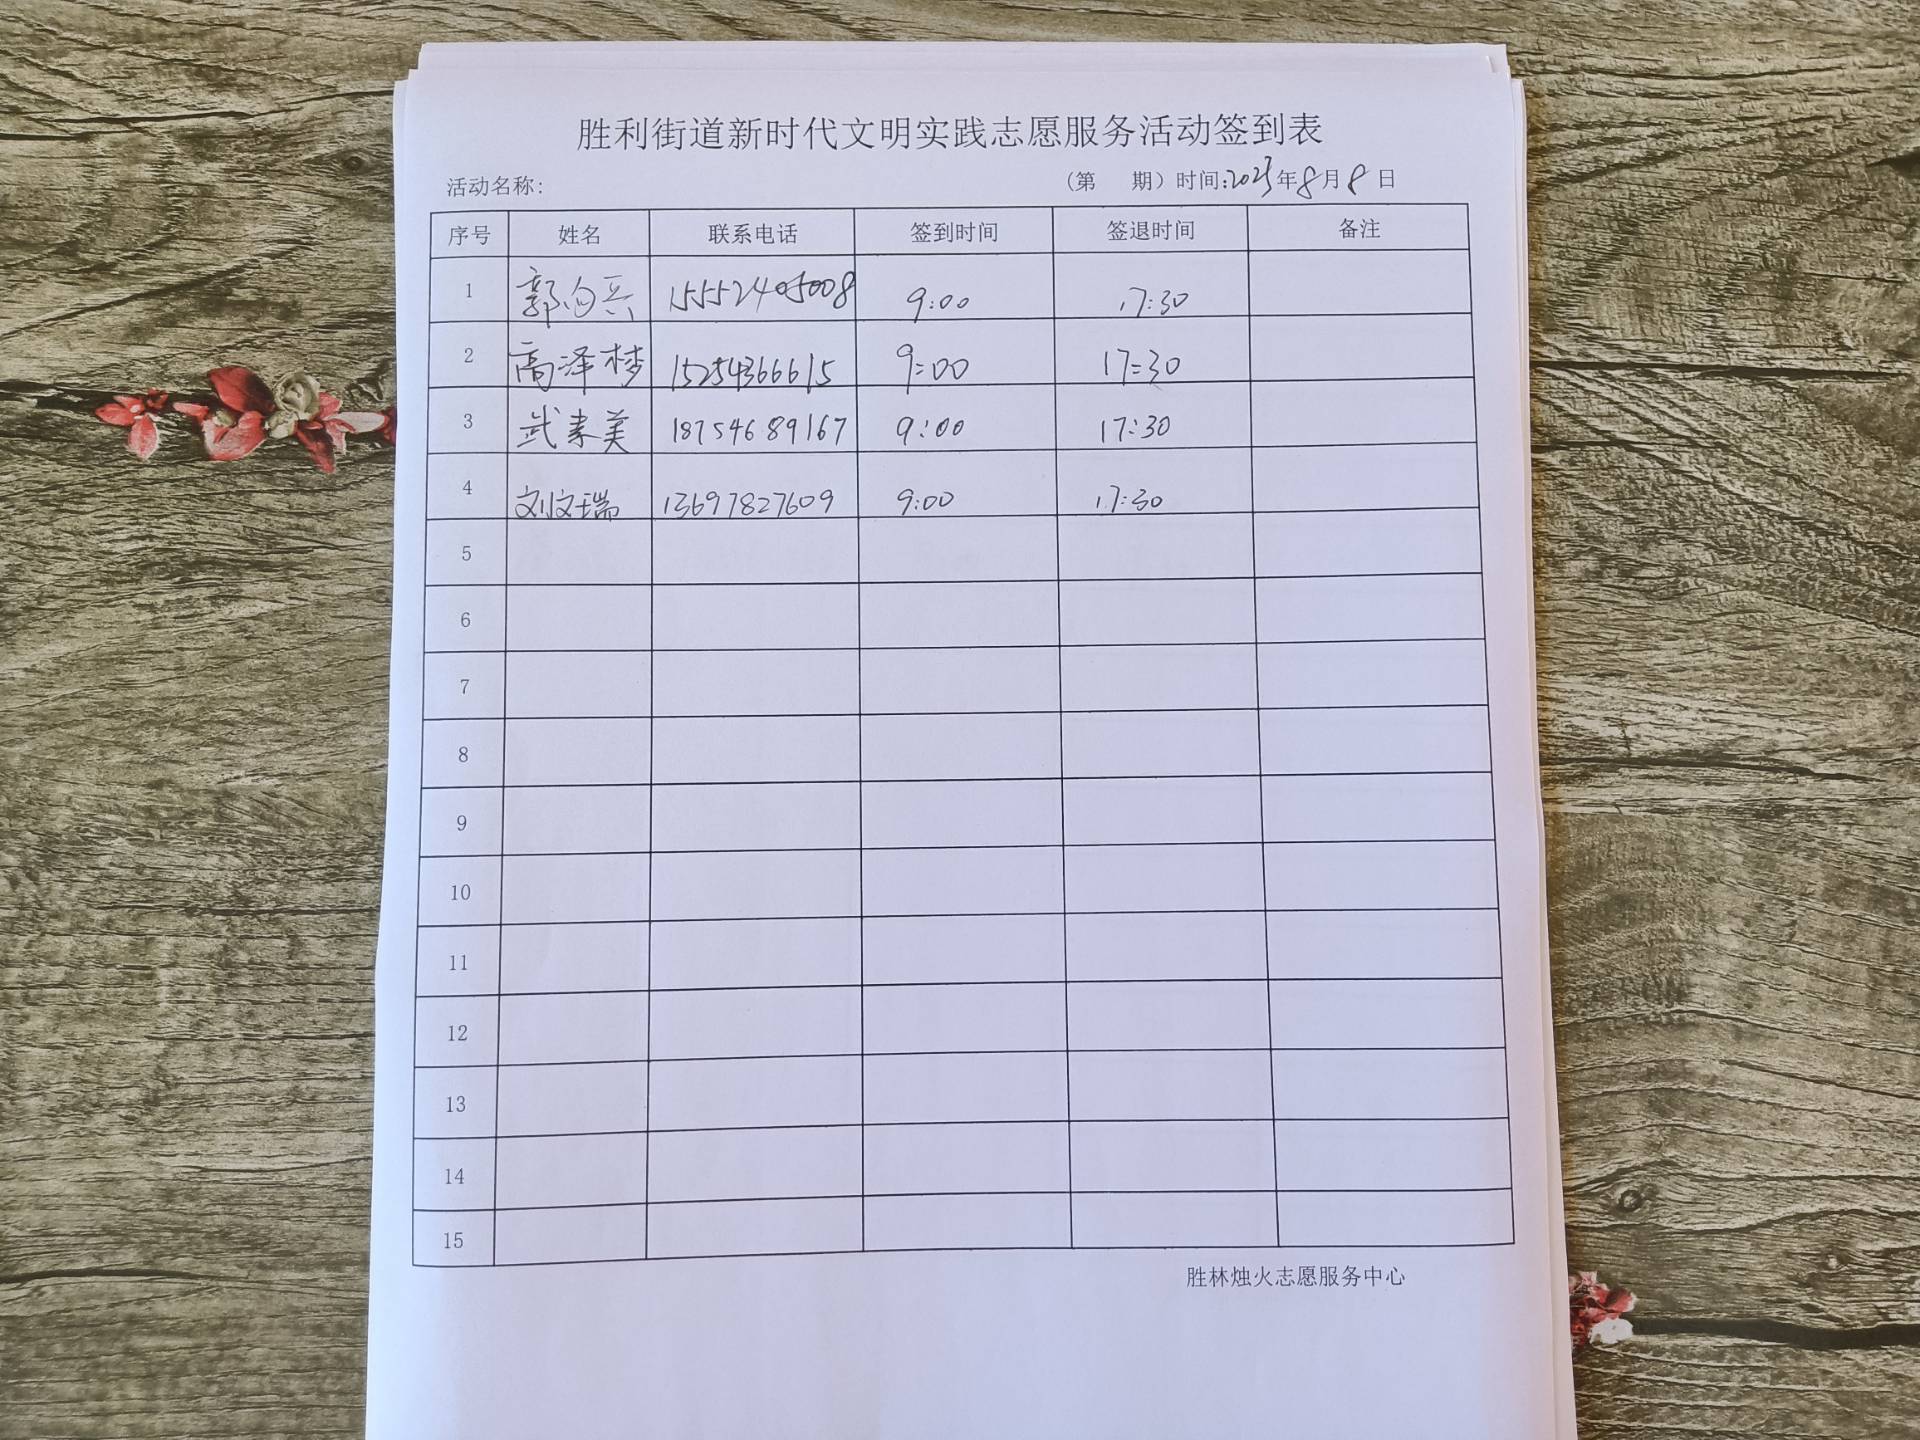 胜利街道新时代文明实践志愿服务活动签到表
活动名称: (第 期) 时间:2023年8月8日
序号 姓名 联系电话 签到时间 签退时间 备注
1 郭向兵 15552405008 9:00 17:30
2 高泽梦 15254366615 9:00 17:30
3 武素美 18754689167 9:00 17:30
4 刘文瑞 13697827609 9:00 17:30
5
6
7
8
9
10
11
12
13
14
15
胜林烛火志愿服务中心